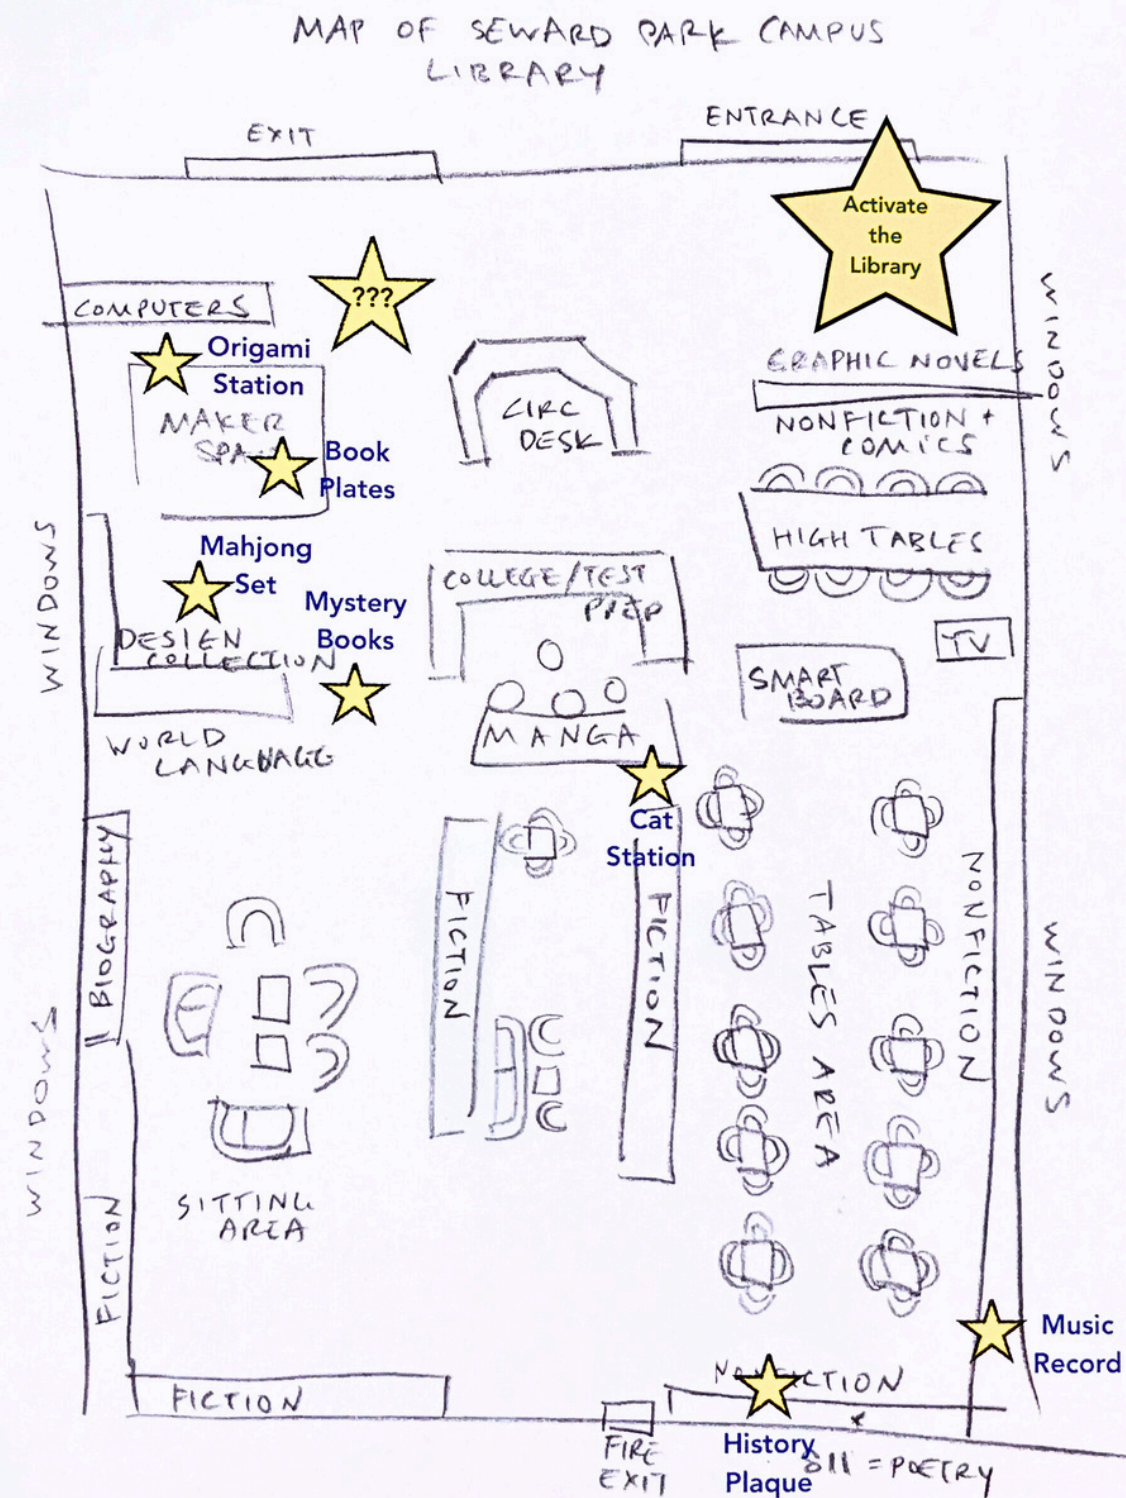 MAP OF SEWARD PARK CAMPUS
LIBRARY
EXIT
ENTRANCE
Activate
the
Library
???
COMPUTERS
Origami
Station
MAKER
SPA
Book
Plates
CIRC
DESK
GRAPHIC NOVELS
NONFICTION +
COMICS
WINDOWS
HIGH TABLES
WINDOWS
Mahjong
Set
DESIGN
COLLECTION
Mystery
Books
COLLEGE/TEST
PREP
TV
SMART
BOARD
WORLD
LANGUAGE
MANGA
Cat
Station
BIOGRAPHY
FICTION
FICTION
TABLES AREA
NONFICTION
WINDOWS
WINDOWS
SITTING
AREA
FICTION
Music
Record
FICTION
NONFICTION
FIRE
EXIT
History
Plaque
811 = POETRY